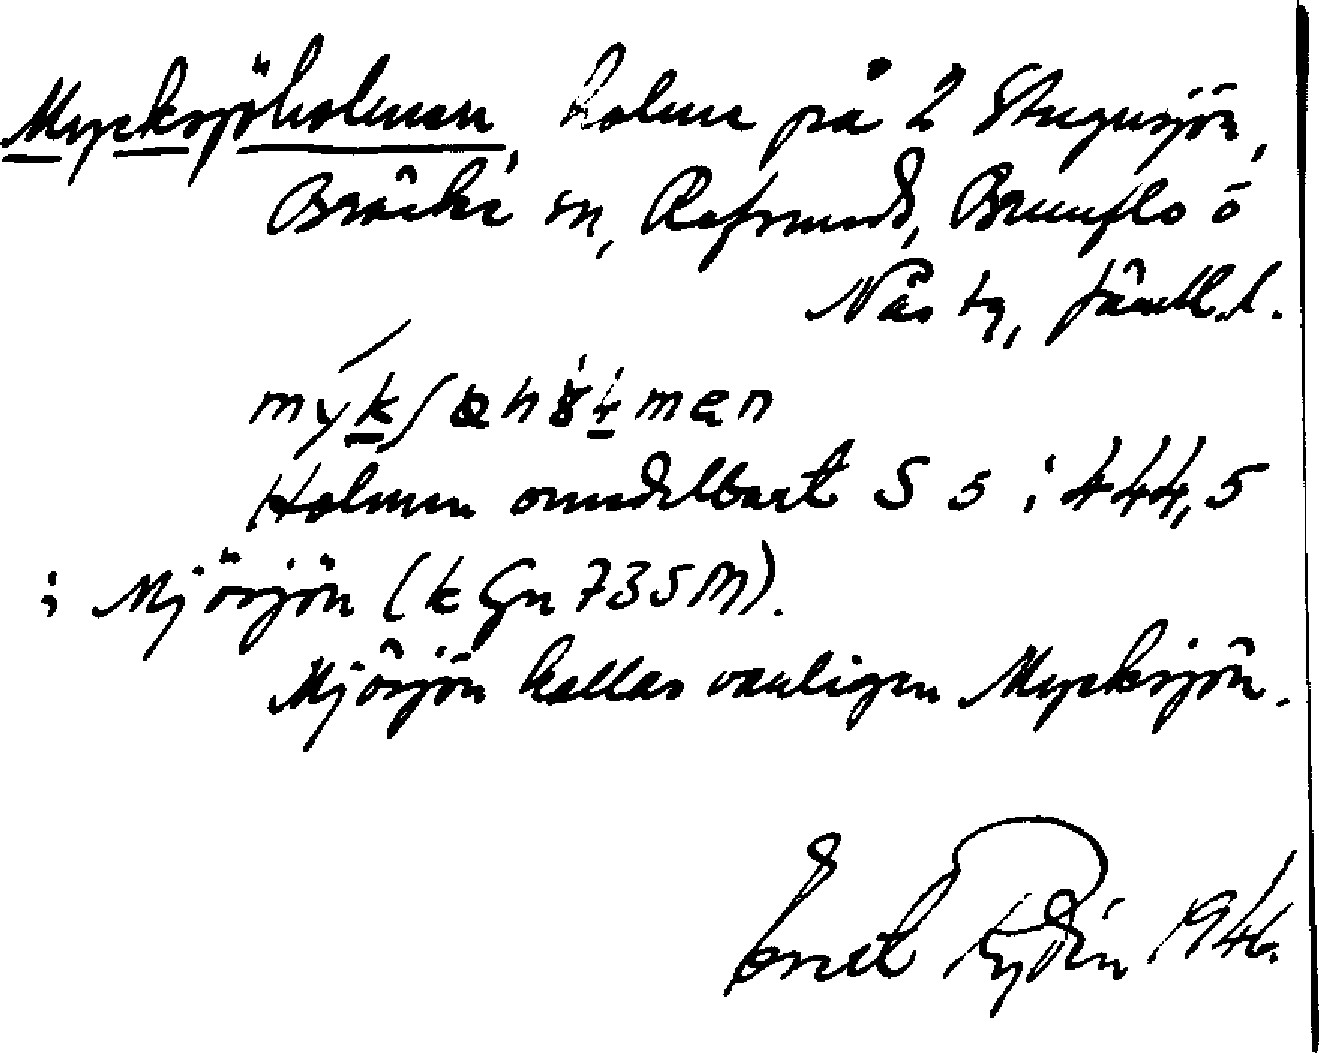 Mycksjöholmen, holme på 2 Stugusjön,
Bräcke sn, Refsund, Brunflo o
Näs tg, Jämtl.l.
Holmen omedelbart S 5 i 444,5
i Mjösjön (k Gn 735M).
Mjösjön kallas vanligen Mycksjön.
Ernst Rydin 1946.